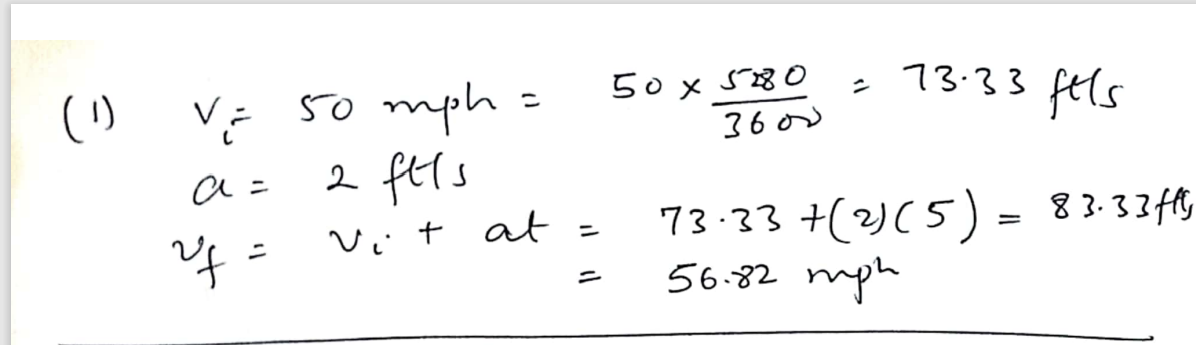 (1) vᵢ = 50 mph = 50 × 5280/3600 = 73.33 ft/s
a = 2 ft/s
v_f = vᵢ + at = 73.33 + (2)(5) = 83.33 ft/s
= 56.82 mph